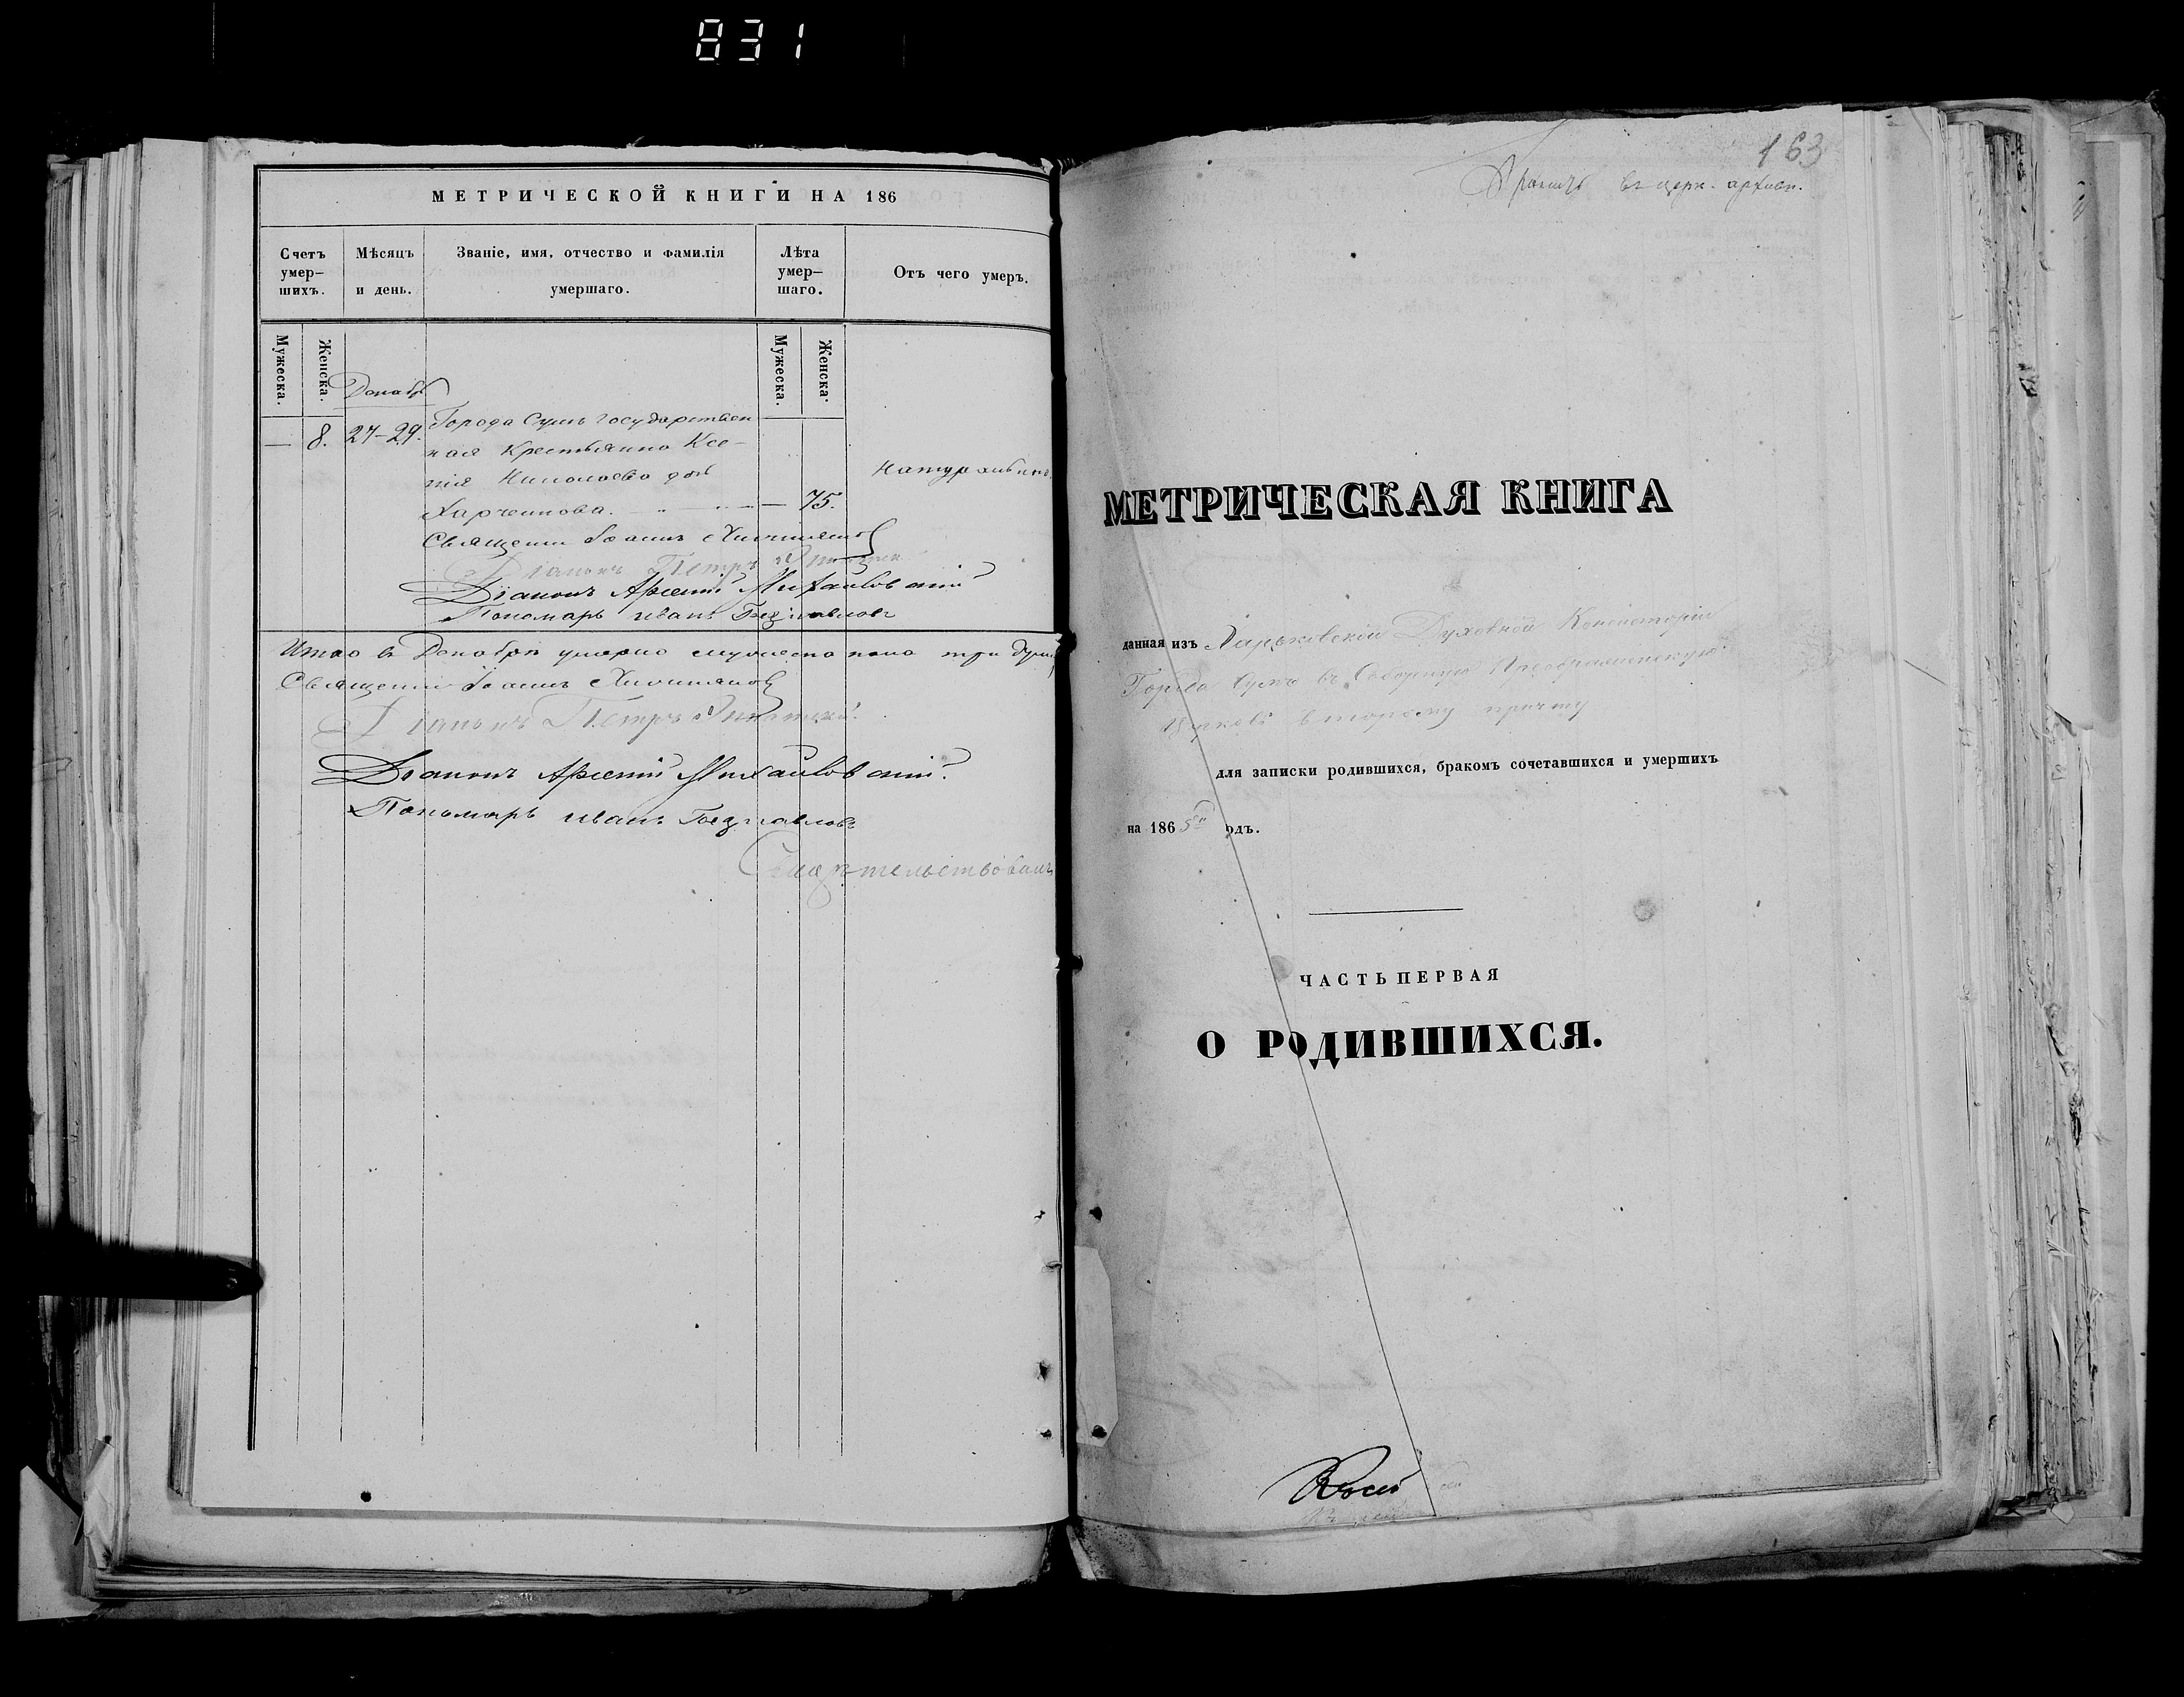 831
МЕТРИЧЕСКОЙ КНИГИ НА 186
Счетъ умер–шихъ.
Мѣсяцъ и день.
Званіе, имя, отчество и фамилія умершаго.
Лѣта умер–шаго.
Отъ чего умеръ.
Мужеска.
Женска.
Мужеска.
Женска.
Декабрь
— 8. 27–29. Города Сумъ государствен
ная крестьянка Ксе–
нія Николаева дочь
Натурально.
Харченкова. — 75.
Священникъ Іоаннъ
Діаконъ Петръ
Діаконъ Арсеній Михайловскій
Пономарь Иванъ
Итого въ Декабрѣ умерло мужеска пола три души
Священникъ Іоаннъ
Діаконъ Петръ
Діаконъ Арсеній Михайловскій.
Пономарь Иванъ
Свидѣтельствовалъ
163
въ церк. архивѣ.
МЕТРИЧЕСКАЯ КНИГА
данная изъ Харьковской Духовной Консисторіи
Города Сумъ въ Соборную Преображенскую
Церковь второму причту
для записки родившихся, бракомъ сочетавшихся и умершихъ
на 1865й одъ.
ЧАСТЬ ПЕРВАЯ
О РОДИВШИХСЯ.